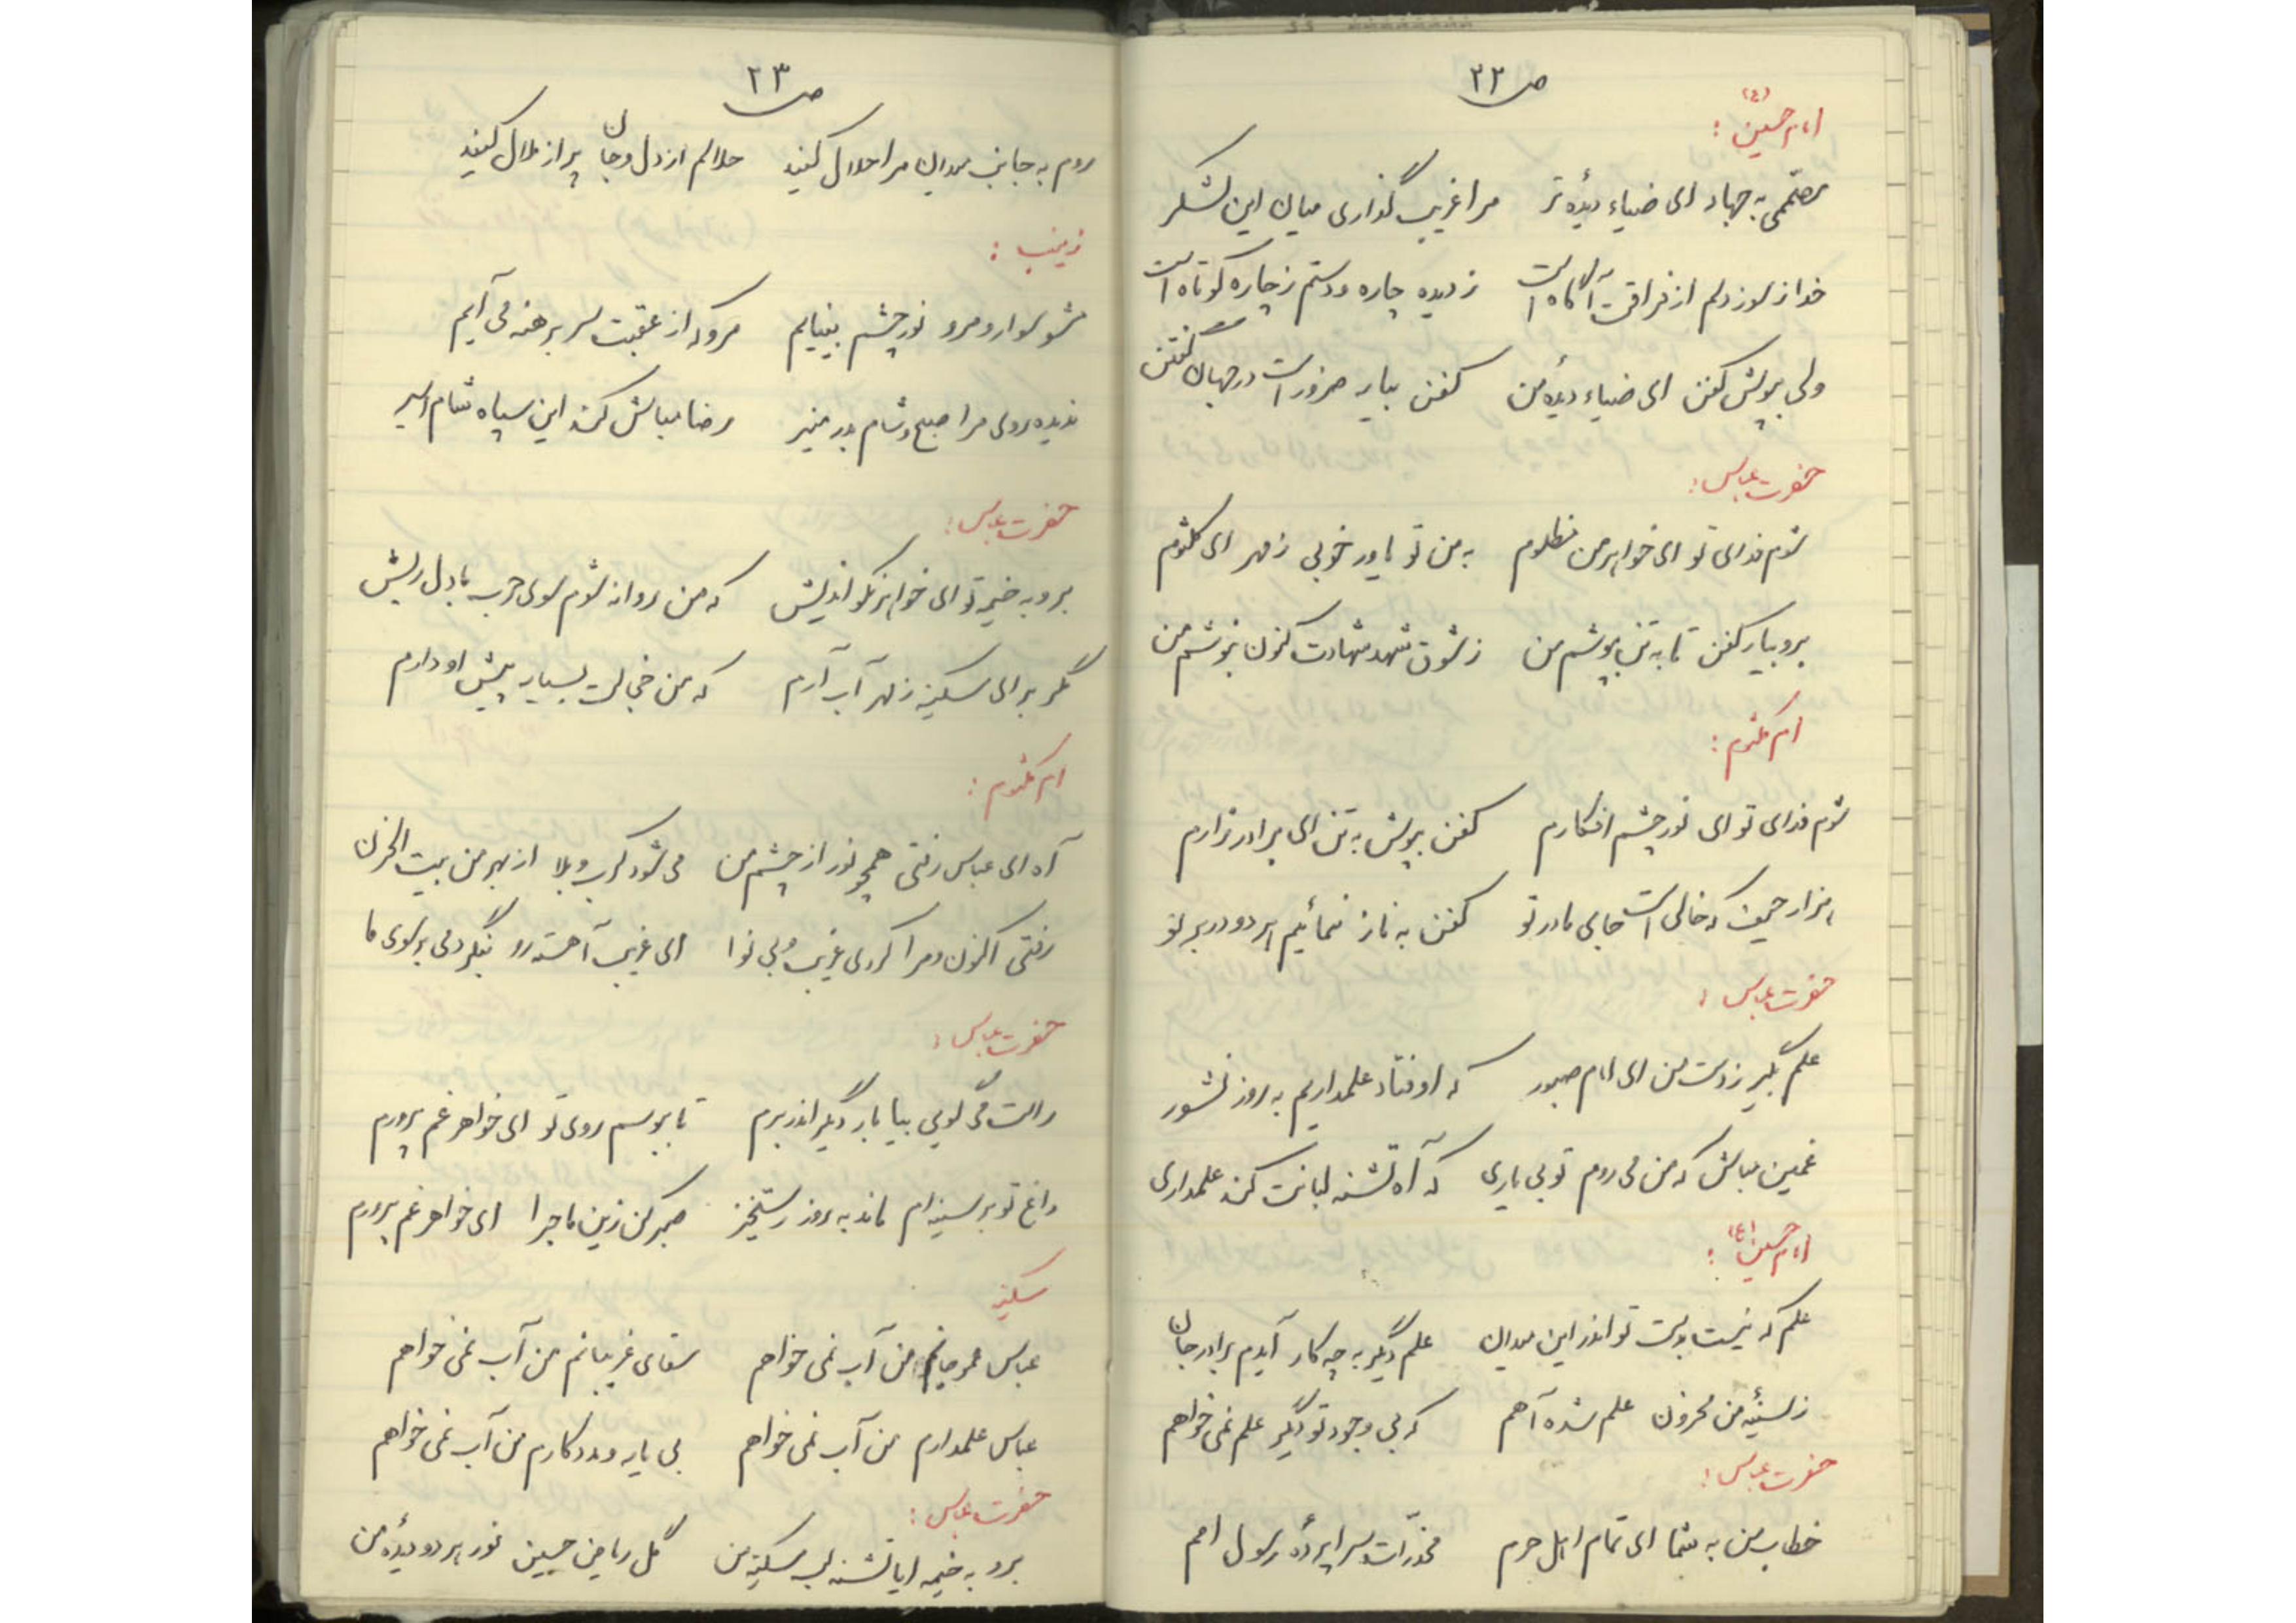 ص ۲۲
امام حسین (ع) :
مصممی به جهاد ای ضیاء دیدهٔ تر مرا غریب گذاری میان این لشکر
خدا ز سوز دلم از فراقت آگاه است ز دیده چاره و دستم ز چاره کوتاه است
ولی بپوش کفن ای ضیاء دیدهٔ من کفن بیار ضرور است در جهان کفن
حضرت عباس :
شوم فدای تو ای خواهر من مظلوم به من تو یاور خوبی ز مهر ای کلثوم
برو بیار کفن تا به تن بپوشم من ز شوق شهد شهادت کنون بنوشم من
ام کلثوم :
شوم فدای تو ای نور چشم افکارم کفن بپوش به تن ای برادر زارم
هزار حیف که خالی است جای مادر تو کفن به ناز نمائیم هر دو در بر تو
حضرت عباس :
علم بگیر ز دست من ای امام صبور که اوفتاد علمداریم به روز نشور
غمین مباش که من می روم تو بی یاری که آه تشنه لبانت کند علمداری
امام حسین (ع) :
علم که نیست بدست تو اندر این میدان علم دگیر به چه کار آیدم برادر جان
ز سینهٔ من محزون علم شده آهم که بی وجود تو دیگر علم نمی خواهم
حضرت عباس :
خطاب من به شما ای تمام اهل حرم مخدّرات سراپردهٔ رسول امم
ص ۲۳
روم به جانب میدان مرا حلال کنید حلالم از دل و جان پر از ملال کنید
زینب :
مشو سوار و مرو نور چشم بینایم مرو که از عقبت سر برهنه می آیم
ندیده روی مرا صبح و شام بدر منیر رضا مباش کند این سپاه شام اسیر
حضرت عباس :
برو به خیمه تو ای خواهر نکو اندیش که من روانه شوم سوی حرب با دل ریش
مگر برای سکینه ز مهر آب آرم که من خجالت بسیار پیش او دارم
ام کلثوم :
آه ای عباس رفتی همچو نور از چشم من می شود کرب و بلا از بهر من بیت الحزن
رفتی اکنون و مرا کردی غریب و بی نوا ای غریب آهسته رو بنگر دمی بر سوی ما
حضرت عباس :
راست می گویی بیا بار دگیر اندر برم تا ببوسم روی تو ای خواهر غم پرورم
داغ تو بر سینه ام ماند به روز رستخیز صبر کن زین ماجرا ای خواهر غم پرورم
سکینه
عباس عمو جانم من آب نمی خواهم سقای غریبانم من آب نمی خواهم
عباس علمدارم من آب نمی خواهم بی یار و مددکارم من آب نمی خواهم
حضرت عباس :
برو به خیمه ایا تشنه لب سکینهٔ من گل ریاض حسین نور هر دو دیدهٔ من